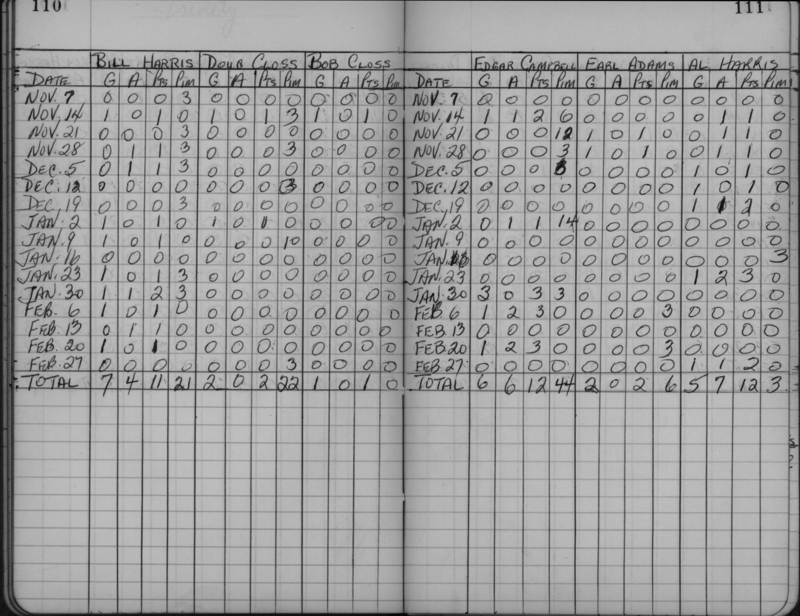 110
BILL HARRIS DOUG CLOSS BOB CLOSS
DATE G A Pts Pim G A Pts Pim G A Pts Pim
NOV. 7 0 0 0 3 0 0 0 0 0 0 0 0
NOV. 14 1 0 1 0 1 0 1 3 1 0 1 0
NOV. 21 0 0 0 3 0 0 0 0 0 0 0 0
NOV. 28 0 1 1 3 0 0 0 3 0 0 0 0
DEC. 5 0 1 1 3 0 0 0 0 0 0 0 0
DEC. 12 0 0 0 0 0 0 0 3 0 0 0 0
DEC. 19 0 0 0 3 0 0 0 0 0 0 0 0
JAN. 2 1 0 1 0 1 0 1 0 0 0 0 0
JAN. 9 1 0 1 0 0 0 0 10 0 0 0 0
JAN. 16 0 0 0 0 0 0 0 0 0 0 0 0
JAN. 23 1 0 1 3 0 0 0 0 0 0 0 0
JAN. 30 1 1 2 3 0 0 0 0 0 0 0 0
FEB. 6 1 0 1 0 0 0 0 0 0 0 0 0
FEB. 13 0 1 1 0 0 0 0 0 0 0 0 0
FEB. 20 1 0 1 0 0 0 0 0 0 0 0 0
FEB. 27 0 0 0 0 0 0 0 3 0 0 0 0
TOTAL 7 4 11 21 2 0 2 22 1 0 1 0
111
EDGAR CAMPBELL EARL ADAMS AL HARRIS
DATE G A Pts Pim G A Pts Pim G A Pts Pim
NOV. 7 0 0 0 0 0 0 0 0 0 0 0 0
NOV. 14 1 1 2 6 0 0 0 0 0 1 1 0
NOV. 21 0 0 0 12 1 0 1 0 0 1 1 0
NOV. 28 0 0 0 3 1 0 1 0 0 1 1 0
DEC. 5 0 0 0 6 0 0 0 0 1 0 1 0
DEC. 12 0 0 0 0 0 0 0 0 1 0 1 0
DEC. 19 0 0 0 0 0 0 0 0 1 1 2 0
JAN. 2 0 1 1 14 0 0 0 0 0 0 0 0
JAN. 9 0 0 0 0 0 0 0 0 0 0 0 0
JAN. 16 0 0 0 0 0 0 0 0 0 0 0 3
JAN. 23 0 0 0 0 0 0 0 0 1 2 3 0
JAN. 30 3 0 3 3 0 0 0 0 0 0 0 0
FEB. 6 1 2 3 0 0 0 0 3 0 0 0 0
FEB 13 0 0 0 0 0 0 0 0 0 0 0 0
FEB. 20 1 2 3 0 0 0 0 3 0 0 0 0
FEB. 27 0 0 0 0 0 0 0 0 1 1 2 0
TOTAL 6 6 12 44 2 0 2 6 5 7 12 3